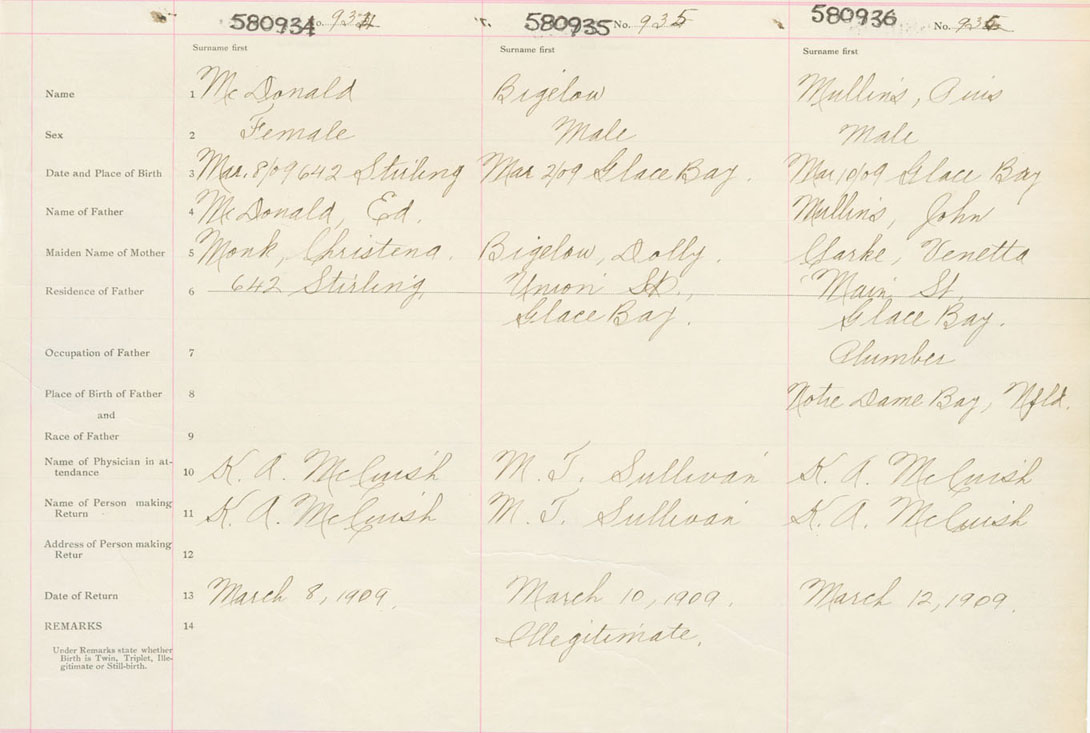 580934 No. 934 580935 No. 935 580936 No. 936
Surname first Surname first Surname first
Name 1 McDonald Bigelow Mullins, Pius
Sex 2 Female Male Male
Date and Place of Birth 3 Mar. 8/09 642 Stirling Mar 2/09 Glace Bay. Mar 10/09 Glace Bay
Name of Father 4 McDonald, Ed. Mullins, John
Maiden Name of Mother 5 Monk, Christena. Bigelow, Dolly. Clarke, Venetta
Residence of Father 6 642 Stirling Union St., Main St.
Glace Bay. Glace Bay.
Occupation of Father 7 Plumber
Place of Birth of Father 8 Notre Dame Bay, Nfld.
and
Race of Father 9
Name of Physician in at-
tendance 10 K. A. McCuish M. T. Sullivan K. A. McCuish
Name of Person making
Return 11 K. A. McCuish M. T. Sullivan K. A. McCuish
Address of Person making
Retur 12
Date of Return 13 March 8, 1909. March 10, 1909. March 12, 1909.
REMARKS 14 Illegitimate.
Under Remarks state whether
Birth is Twin, Triplet, Ille-
gitimate or Still-birth.